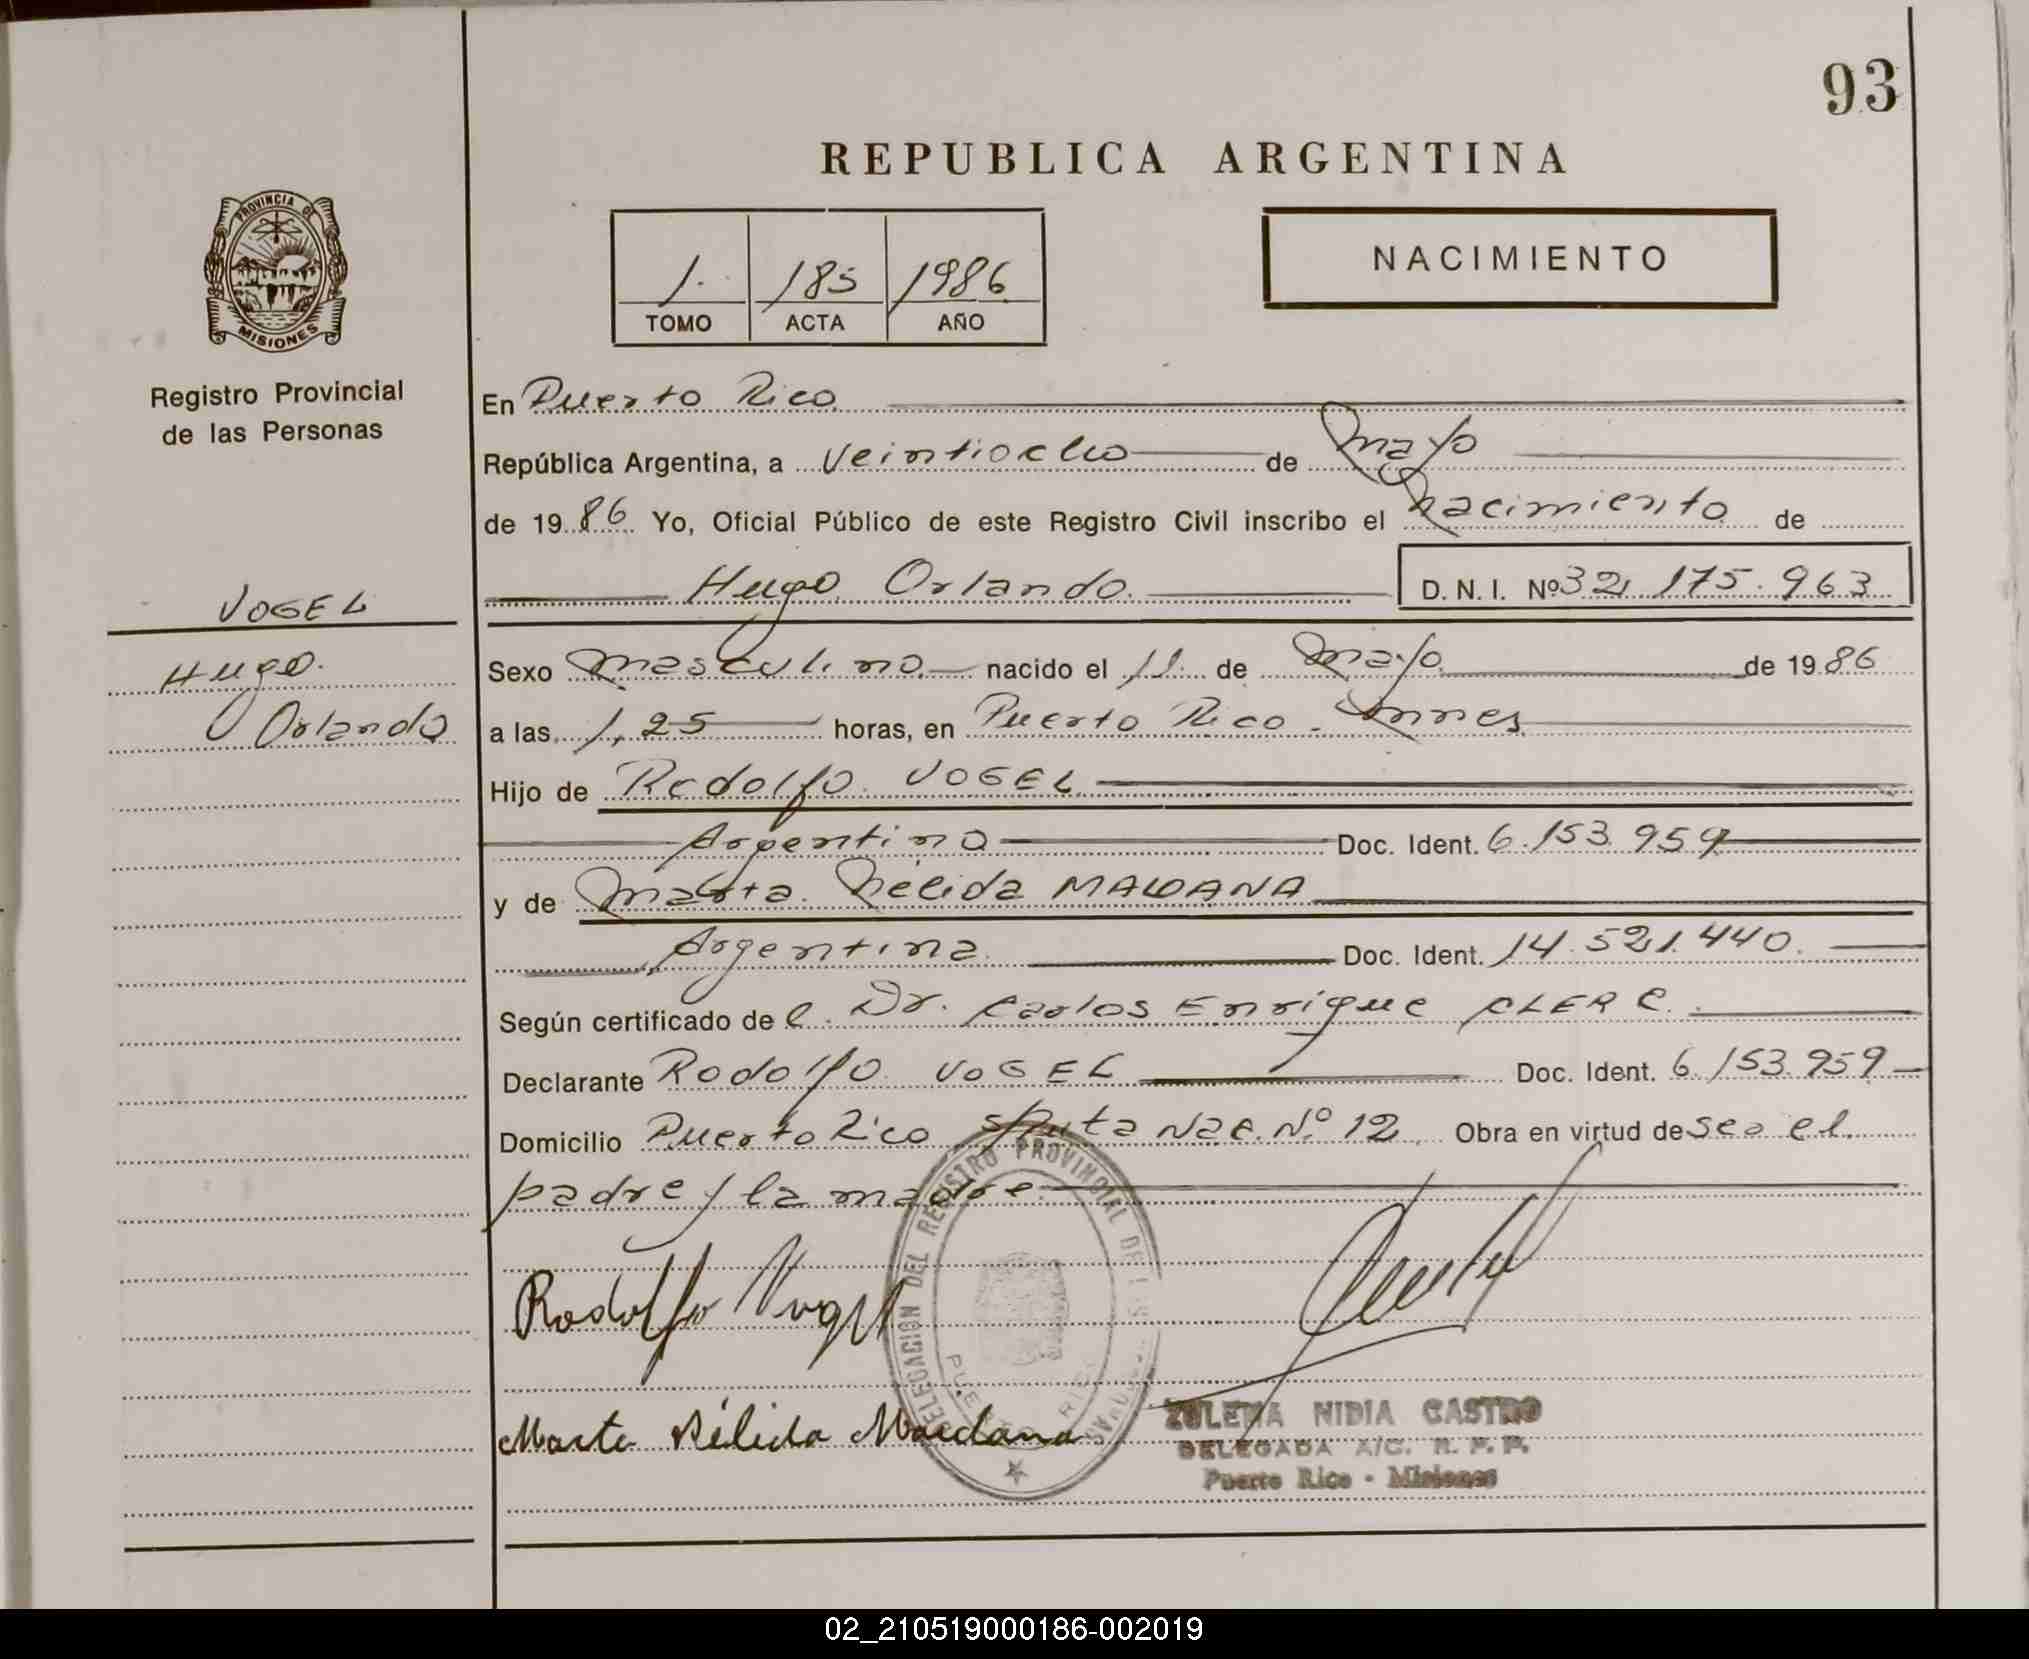 93
REPUBLICA ARGENTINA
PROVINCIA DE
MISIONES
Registro Provincial
de las Personas
1. 185 1986
TOMO ACTA AÑO
NACIMIENTO
En Puerto Rico
República Argentina, a veintiocho de mayo
de 1986 Yo, Oficial Público de este Registro Civil inscribo el nacimiento de
Hugo Orlando D. N. I. Nº 32.175.963
VOGEL
Hugo
Orlando
Sexo masculino nacido el 11 de mayo de 1986
a las 1,25 horas, en Puerto Rico - mnes
Hijo de Rodolfo VOGEL
Argentino Doc. Ident. 6.153.959
y de Marta Nélida MALDANA
Argentina Doc. Ident. 14.521.440.
Según certificado de l. Dr. Carlos Enrique CLERC.
Declarante Rodolfo VOGEL Doc. Ident. 6.153.959
Domicilio Puerto Rico Ruta Nac. Nº 12 Obra en virtud de ser el
padre y la madre
Rodolfo Vogel
Marta Nélida
DELEGACION DEL REGISTRO PROVINCIAL DE LAS PERSONAS
PUERTO RICO
ZULEMA NIDIA CASTRO
DELEGADA A/C. R. P. P.
Puerto Rico - Misiones
02_210519000186-002019